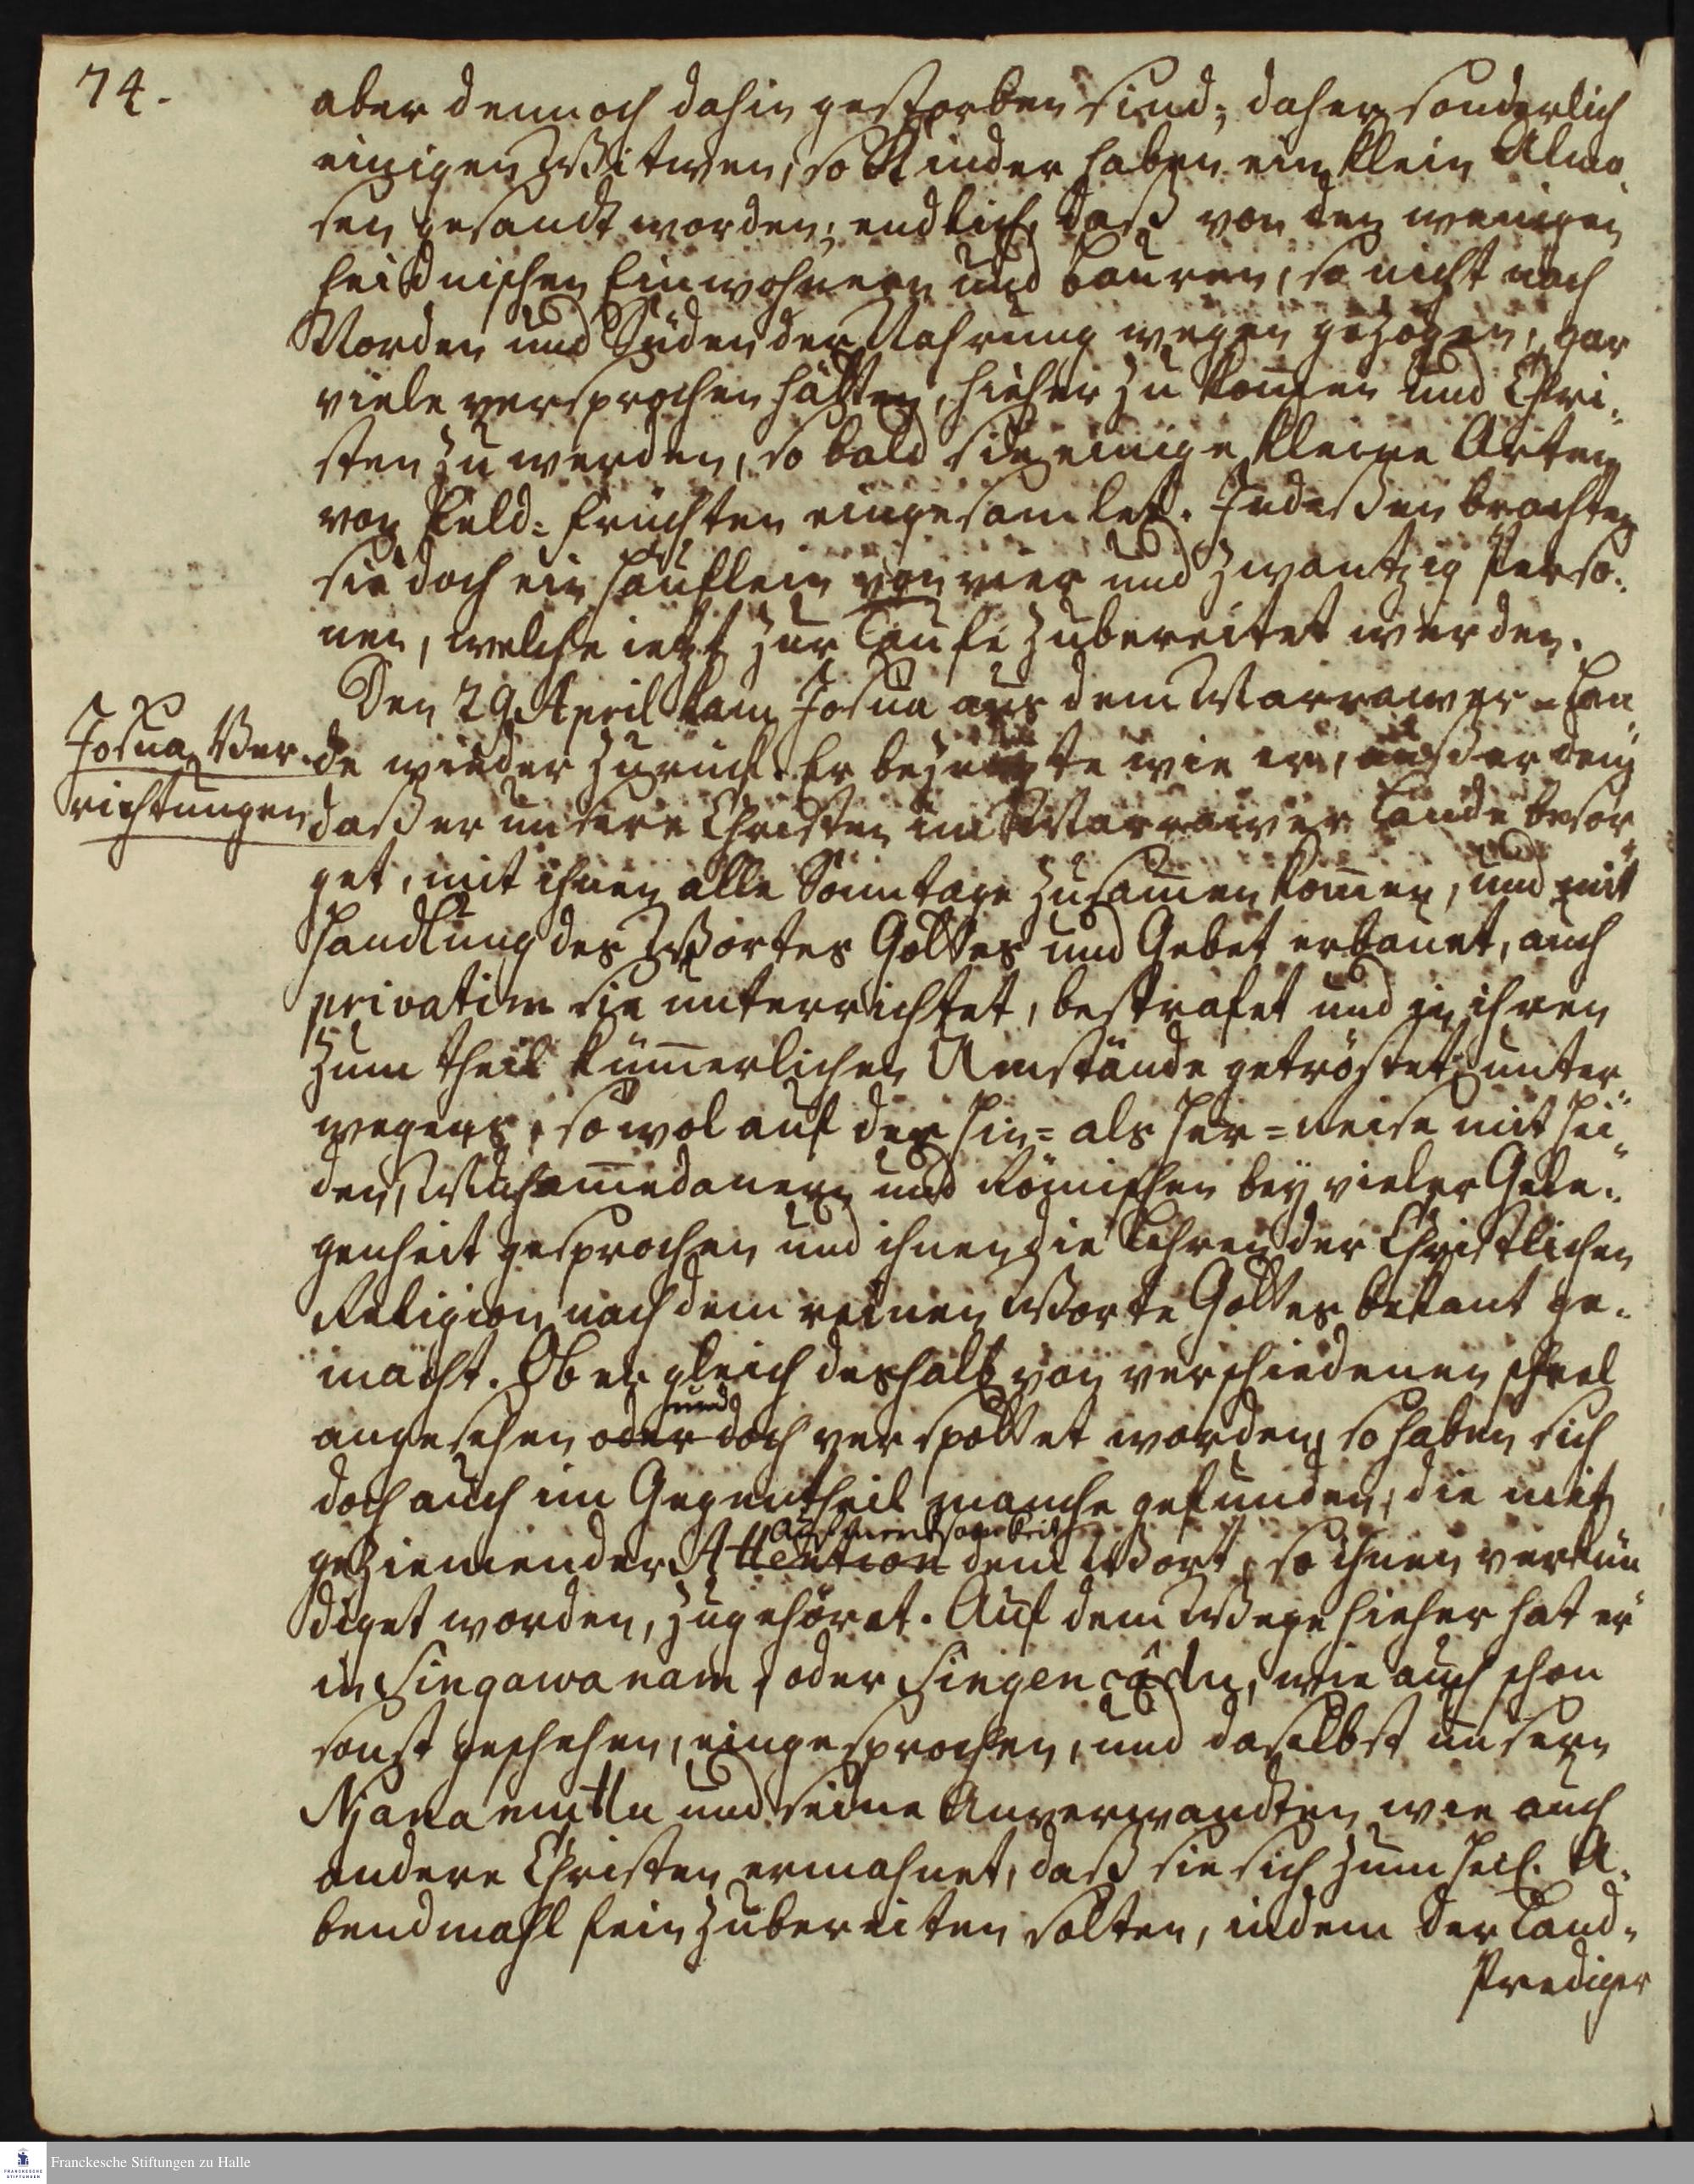 74.
aber dennoch dahin gestorben sind; daher sonderlich
einigen Witwen, so Kinder haben ein klein Almo-
sen gesandt worden; endlich, daß von den wenigen
heidnischen Einwohnern und Bauren, so nicht nach
Norden und Süden der Nahrung wegen gezogen, gar
viele versprochen hätten, hieher zu kom̅en und Chri-
sten zu werden, so bald sie einige kleine Arten
von Feld-Früchten eingesamlet. Indeßen brachten
sie doch ein Häuflein von vier und zwantzig Perso-
nen, welche ietzt zur Taufe zubereitet werden.
Den 29 April kam Josua aus dem Marrawer-Lan-
Josua Ver-
richtungen
de wieder zurück. Er bezeugte wie er, außer dem
daß er unsere Christen im Marrawer Lande besor-
get, mit ihnen alle Sonntage zusam̅en kom̅en, und mit
Handlung des Wortes Gottes und Gebet erbauet, auch
privatim sie unterrichtet, bestrafet und in ihren
zum theil küm̅erlichen Umstände getröstet, unter-
wegens, so wol auf der Hin- als Her-Reise mit Hei-
den, Muham̅edanern und Römischen bey vieler Gele-
genheit gesprochen und ihnen die Lehren der Christlichen
Religion nach dem reinen Worte Gottes bekant ge-
macht. Ob er gleich deshalb von verschiedenen scheel
und
angesehen oder doch verspottet worden, so haben sich
doch auch im Gegentheil manche gefunden, die mit
Aufmerksamkeit
geziemender Attention dem Wort, so ihnen verkün
diget worden, zugehöret. Auf dem Wege hieher hat er
in Singawanam, oder Singencâdu, wie auch schon
sonst geschehen, eingesprochen, und daselbst unsern
Njanamuttu und seine Anverwandten, wie auch
andere Christen ermahnet, daß sie sich zum Heil. A-
bendmahl fein zubereiten solten, indem der Land-
Prediger
Franckesche Stiftungen zu Halle